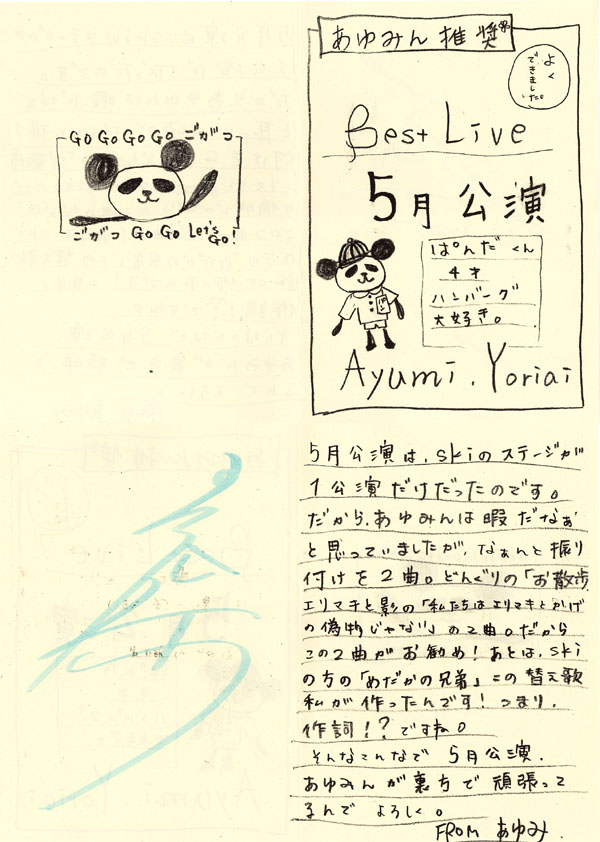 GO GO GO GO ごがつ
ごがつ GO GO Let's Go!
あゆみん推奨
よく
できました。
Best Live
5月公演
ぱんだくん
4才
ハンバーグ
大好き。
Ayumi.Yoriai
5月公演は、skiのステージが
1公演だけだったのです。
だから、あゆみんは暇だなぁ
と思っていましたが、なぁんと振り
付けを2曲。どんぐりの「お散歩」
エリマキと影の「私たちはエリマキとかげ
の偽物じゃない」の2曲。だから
この2曲がお勧め!あとは、ski
の方の「めだかの兄弟」この替え歌
私が作ったんです!つまり、
作詞!?ですね。
そんなこんなで5月公演、
あゆみんが裏方で頑張って
るんでよろしく。
FROM あゆみ.